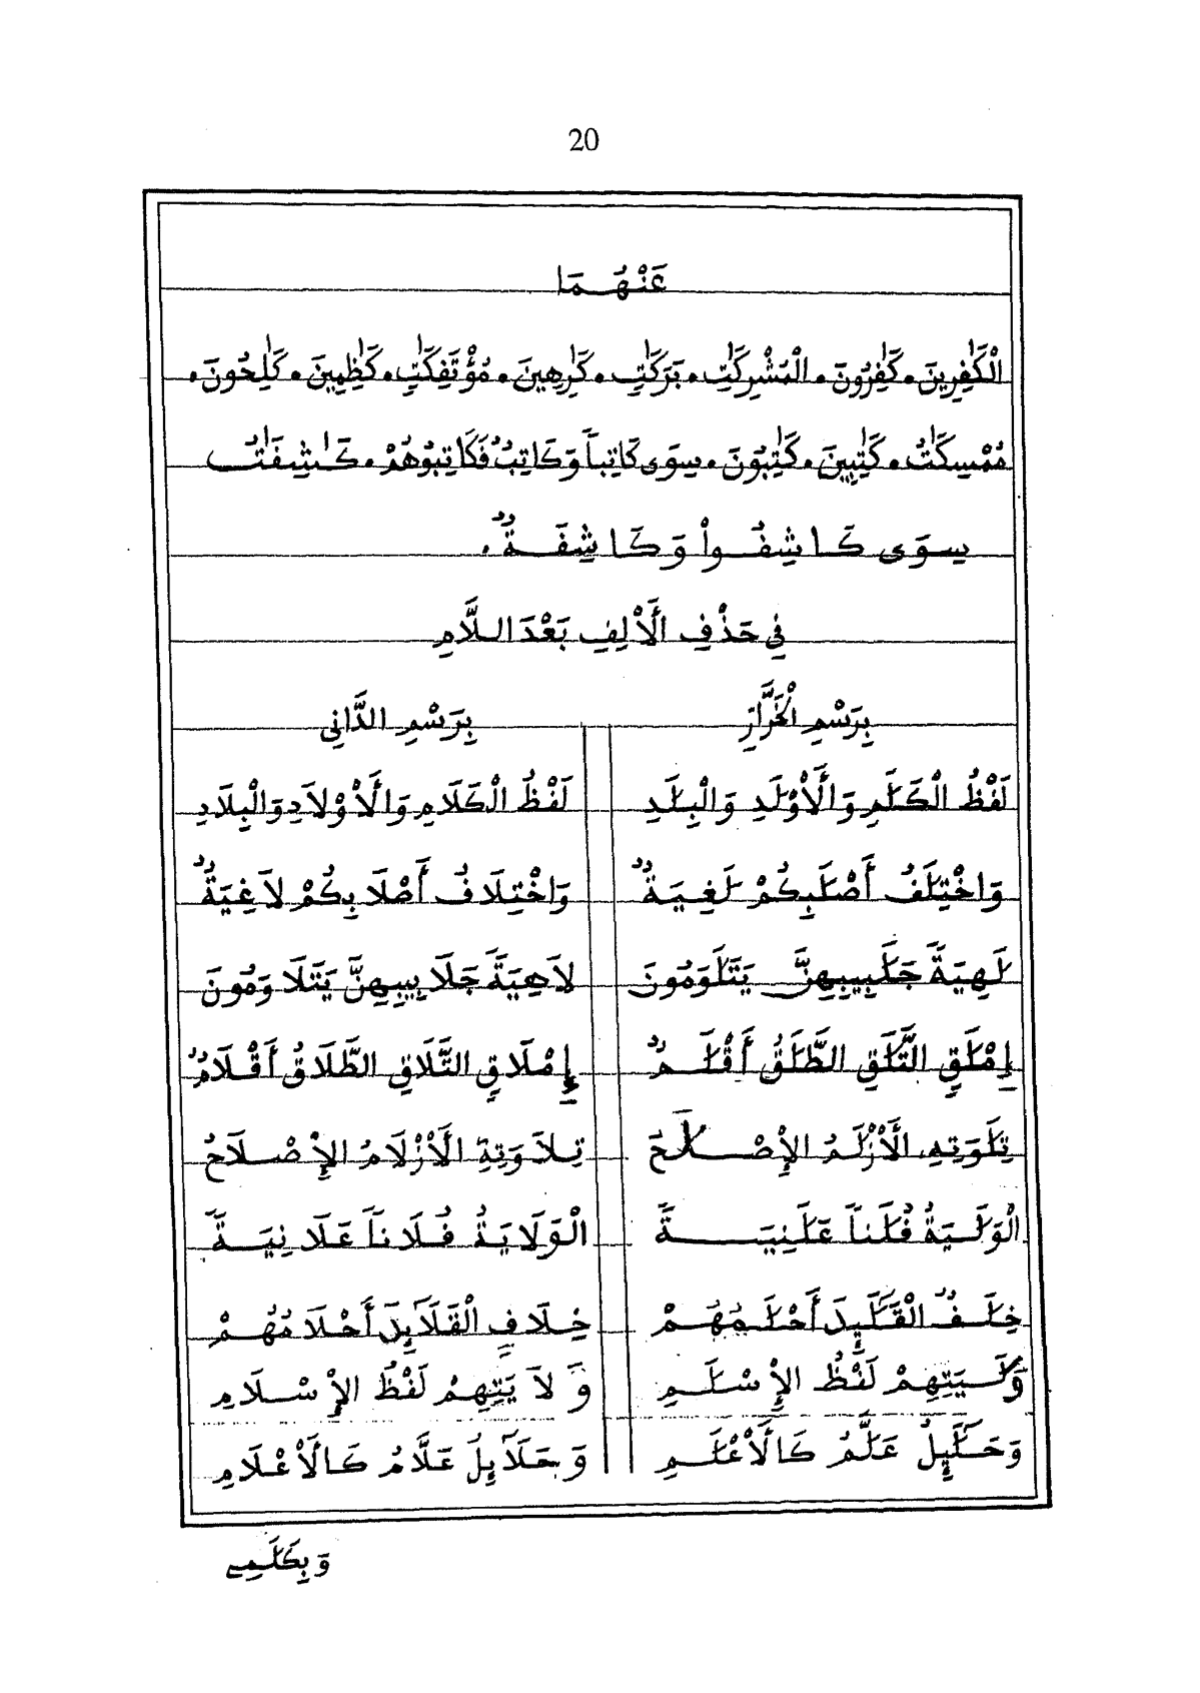 20
عَنْهُمَا
الْكَٰفِرِينَ. كَٰفِرُونَ. الْمُشْرِكَٰتِ. بَرَكَٰتٍ. كَٰرِهِينَ. مُؤْتَفِكَٰتِ. كَٰظِمِينَ. كَٰلِحُونَ.
مُمْسِكَٰتُ. كَٰتِبِينَ. كَٰتِبُونَ. سِوَى كَاتِباً وَكَاتِبٌ فَكَاتِبُوهُمْ. كَٰشِفَٰتُ
سِوَى كَاشِفُواْ وَكَاشِفَةٌ.
فِي حَذْفِ الَْأَلِفِ بَعْدَ اللَّامِ
بِرَسْمِ الْخَرَّازِ	بِرَسْمِ الدَّانِي
لَفْظُ الْكَلَٰمِ وَالَْأوْلَٰدِ وَالْبِلَٰدِ	لَفْظُ الْكَلَامِ وَالَْأوْلَادِ وَالْبِلَادِ
وَاخْتِلَٰفُ أَصْلَٰبِكُمْ لَٰغِيَةٌ	وَاخْتِلَافُ أَصْلَابِكُمْ لَاغِيَةٌ
لَٰهِيَةً جَلَٰبِيبِهِنَّ يَتَلَٰوَمُونَ	لَاهِيَةً جَلَابِيبِهِنَّ يَتَلَاوَمُونَ
إِمْلَٰقٍ التَّلَٰقِ الطَّلَٰقُ أَقْلَٰمٌ	إِمْلَاقٍ التَّلَاقِ الطَّلَاقُ أَقْلَامٌ
تِلَٰوَتِهِ الَْأزْلَٰمُ الْإِصْلَٰحَ	تِلَاوَتِهِ الَْأزْلَامُ الْإِصْلَاحُ
الْوَلَٰيَةُ فُلَٰناً عَلَٰنِيَةً	الْوَلَايَةُ فُلَاناً عَلَانِيَةً
خِلَٰفٌ الْقَلَٰٓئِدَ أَحْلَٰمُهُمْ	خِلَافٍ الْقَلَآئِدَ أَحْلَامُهُمْ
وَلَٰيَتِهِمْ لَفْظُ الْإِسْلَٰمِ	وَلَايَتِهِمْ لَفْظُ الْإِسْلَامِ
وَحَلَٰٓئِلُ عَلَّٰمُ كَالَْأعْلَٰمِ	وَحَلَآئِلُ عَلَّامُ كَالَْأعْلَامِ
وَبِكَلَٰمِے